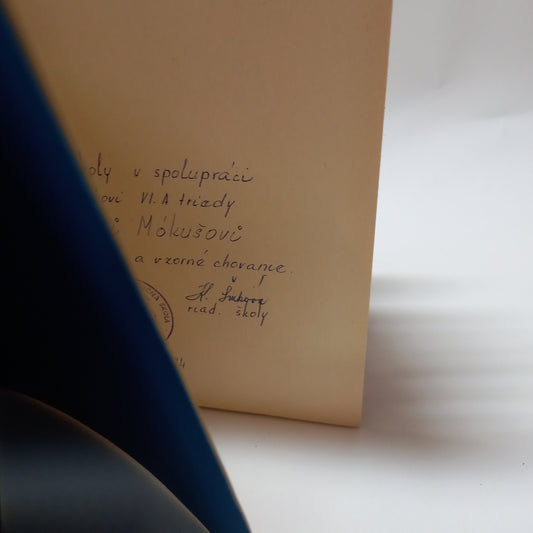 oly v spolupráci
ovi VI. A triedy
i Mókušovi
a vzorné chovanie.
riad. školy